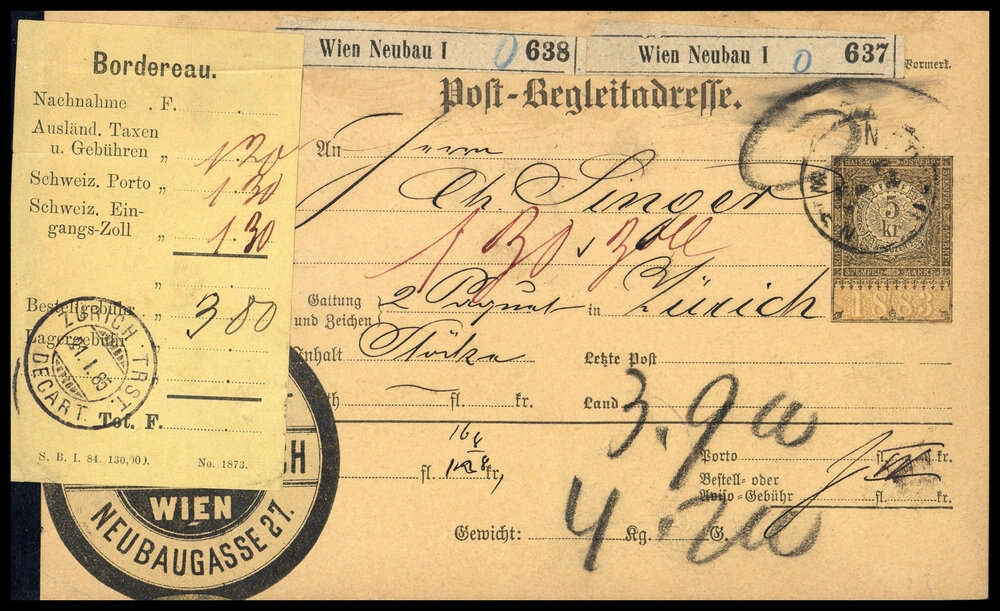 Bordereau.
Nachnahme . F.
Ausländ. Taxen
u. Gebühren „ 1.20
Schweiz. Porto „ 1.30
Schweiz. Ein-
gangs-Zoll „ 1.30
„
Bestellgebühr „ 3 80
Lagergebühr „
Tot. F.
S. B. I. 84. 130,000. No. 1873.
ZÜRICH TRST.
21. I. 85
DÉCART.
WIEN
NEUBAUGASSE 27.
Wien Neubau I 0 638
Wien Neubau I 0 637
Vormerk.
Post-Begleitadresse.
An Herrn
Ch. Singer
1 30 Zoll
Gattung
und Zeichen 2 Paquet in Zürich
Inhalt Stöcke Letzte Post
fl. kr. Land
3.90
fl. kr.
Porto fl. kr.
Bestell- oder
Aviso-Gebühr fl. kr.
Gewicht: Kg. G.
4.20
KAIS. KÖN. ÖSTERR.
5
kr
STEMPEL MARKE
1883